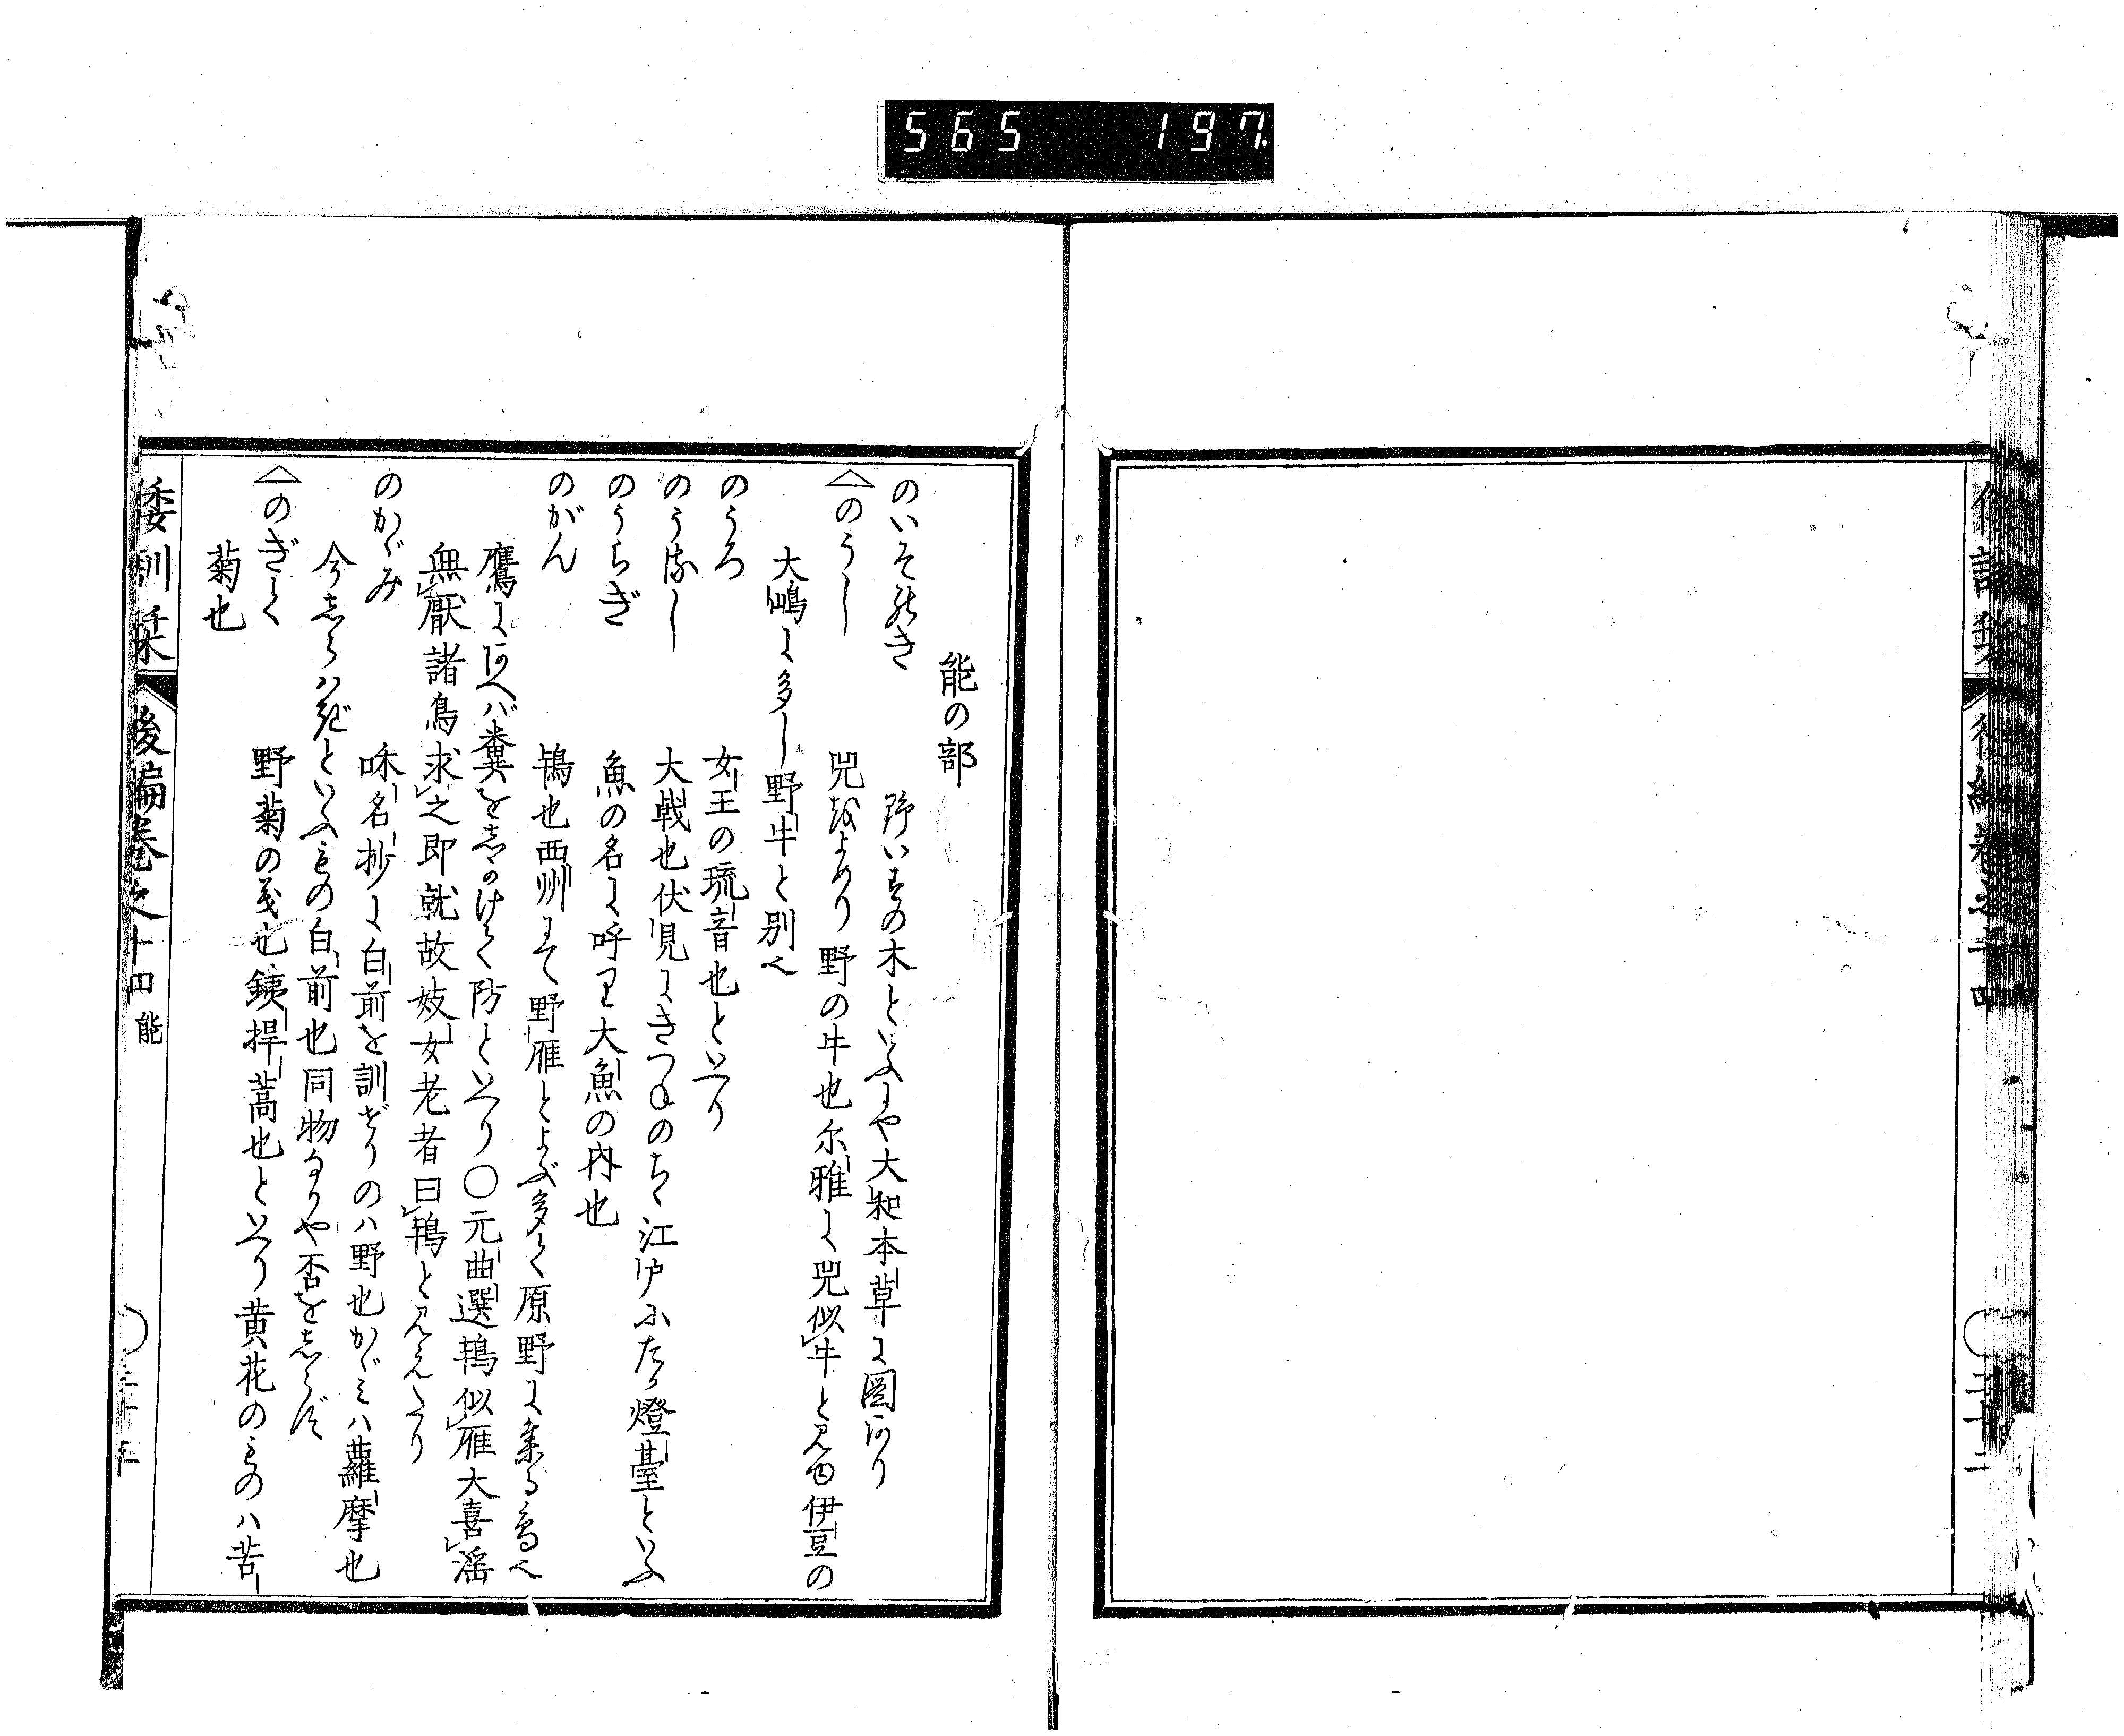 565 197.
倭訓栞 後編卷之十四
○三十二
能の部
のいそのき 野いそのの木といふにや大和本草に圖あり
△のうし 兕をよめり野の牛也尓雅に兕似牛と見ゆ伊豆の
大嶋に多し野牛と別也
のうろ 女王の琉音也といへり
のうるし 大戟也伏見にきつねのちゝ江戸にたか燈臺といふ
のうらぎ 魚の名に呼り大魚の内也
のがん 鴇也西州にて野雁とよぶ多く原野に集る鳥也
鷹にあへバ糞をしかけて防といへり〇元曲選鴇似雁大喜淫
無厭諸鳥求之即就故妓女老者曰鴇と見えたり
のかゞみ 和名抄に白前を訓ぜりのハ野也かゞミハ蘿摩也
今しらハぎといふもの白前也同物なりや否をしらず
△のぎく 野菊の義也銕捍蒿也といへり黄花のものハ苦
菊也
倭訓栞 後編卷之十四 能